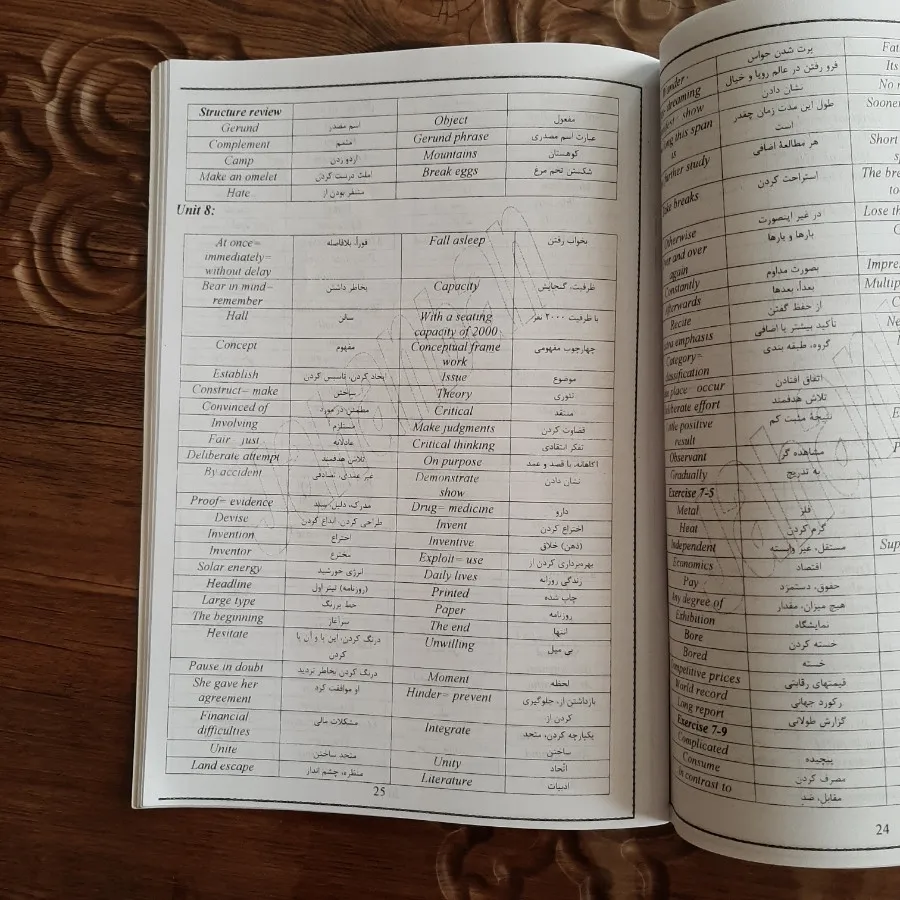 Structure review
Gerund اسم مصدر Object مفعول
Complement متمم Gerund phrase عبارت اسم مصدری
Camp اردو زدن Mountains کوهستان
Make an omelet املت درست کردن Break eggs شکستن تخم مرغ
Hate متنفر بودن از
Unit 8:
At once= فوراً، بلافاصله Fall asleep بخواب رفتن
immediately=
without delay
Bear in mind= بخاطر داشتن Capacity ظرفیت، گنجایش
remember
Hall سالن With a seating با ظرفیت ۲۰۰۰ نفر
capacity of 2000
Concept مفهوم Conceptual frame چهارچوب مفهومی
work
Establish ایجاد کردن، تاسیس کردن Issue موضوع
Construct= make ساختن Theory تئوری
Convinced of مطمئن در مورد Critical منتقد
Involving مستلزم Make judgments قضاوت کردن
Fair just عادلانه Critical thinking تفکر انتقادی
Deliberate attempt تلاش هدفمند On purpose آگاهانه، با قصد و عمد
By accident غیر عمدی، تصادفی Demonstrate نشان دادن
show
Proof= evidence مدرک، دلیل، سند Drug= medicine دارو
Devise طراحی کردن، ابداع کردن Invent اختراع کردن
Invention اختراع Inventive (ذهن) خلاق
Inventor مخترع Exploit= use بهره‌برداری کردن از
Solar energy انرژی خورشید Daily lives زندگی روزانه
Headline (روزنامه) تیتر اول Printed چاپ شده
Large type خط بزرگ Paper روزنامه
The beginning سرآغاز The end انتها
Hesitate درنگ کردن، این پا و آن پا Unwilling بی میل
کردن
Pause in doubt درنگ کردن بخاطر تردید Moment لحظه
She gave her او موافقت کرد Hinder= prevent بازداشتن از، جلوگیری
agreement کردن از
Financial مشکلات مالی Integrate یکپارچه کردن، متحد
difficulties ساختن
Unite متحد ساختن Unity اتحاد
Land escape منظره، چشم انداز Literature ادبیات
25
پرت شدن حواس
dreaming فرو رفتن در عالم رویا و خیال Its
show نشان دادن
this span طول این مدت زمان چقدر Sooner
is است
further study هر مطالعهٔ اضافی Short
breaks استراحت کردن The
Otherwise در غیر اینصورت Lose
and over بارها و بارها
again
Constantly بصورت مداوم
Afterwards بعداً، بعدها
Recite از حفظ گفتن
emphasis تأکید بیشتر یا اضافی
Category= گروه، طبقه بندی
place= occur اتفاق افتادن
effort تلاش هدفمند
positive نتیجهٔ مثبت کم
result
Observant مشاهده گر
Gradually به تدریج
Exercise 7-5
Metal فلز
Heat گرم کردن
Independent مستقل، غیر وابسته
Economics اقتصاد
Pay حقوق، دستمزد
degree of هیچ میزان، مقدار
Exhibition نمایشگاه
Bore خسته کردن
Bored خسته
prices قیمتهای رقابتی
World record رکورد جهانی
Long report گزارش طولانی
Exercise 7-9
Complicated پیچیده
Consume مصرف کردن
in contrast to مقابل، ضد
24